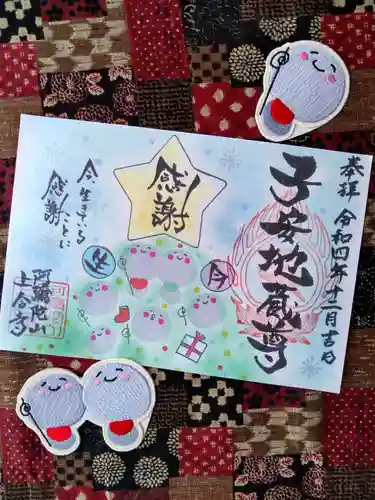 奉拝 令和四年十二月吉日
子安地蔵尊
感謝
今
今、生きている
ことに
感謝
阿彌陀山
土合寺